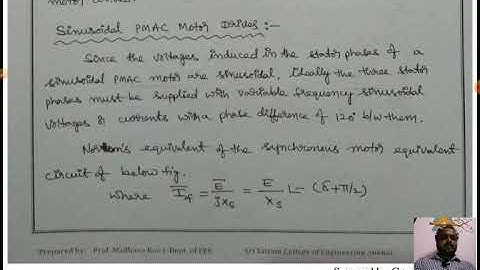 Sinusoidal PMAC Motor Drives :-
Since the voltages induced in the stator phases of a
sinusoidal PMAC motor are sinusoidal, ideally the three stator
phases must be supplied with variable frequency sinusoidal
voltages & currents with a phase difference of 120° b/w them.
Norton's equivalent of the synchronous motor equivalent
circuit of below fig.
Where Īf = Ē / jXs = E / Xs ∠-(δ+π/2)
Prepared by: Prof. Madhava Rao J, Dept. of EEE
Sri Sairam College of Engineering Anekal